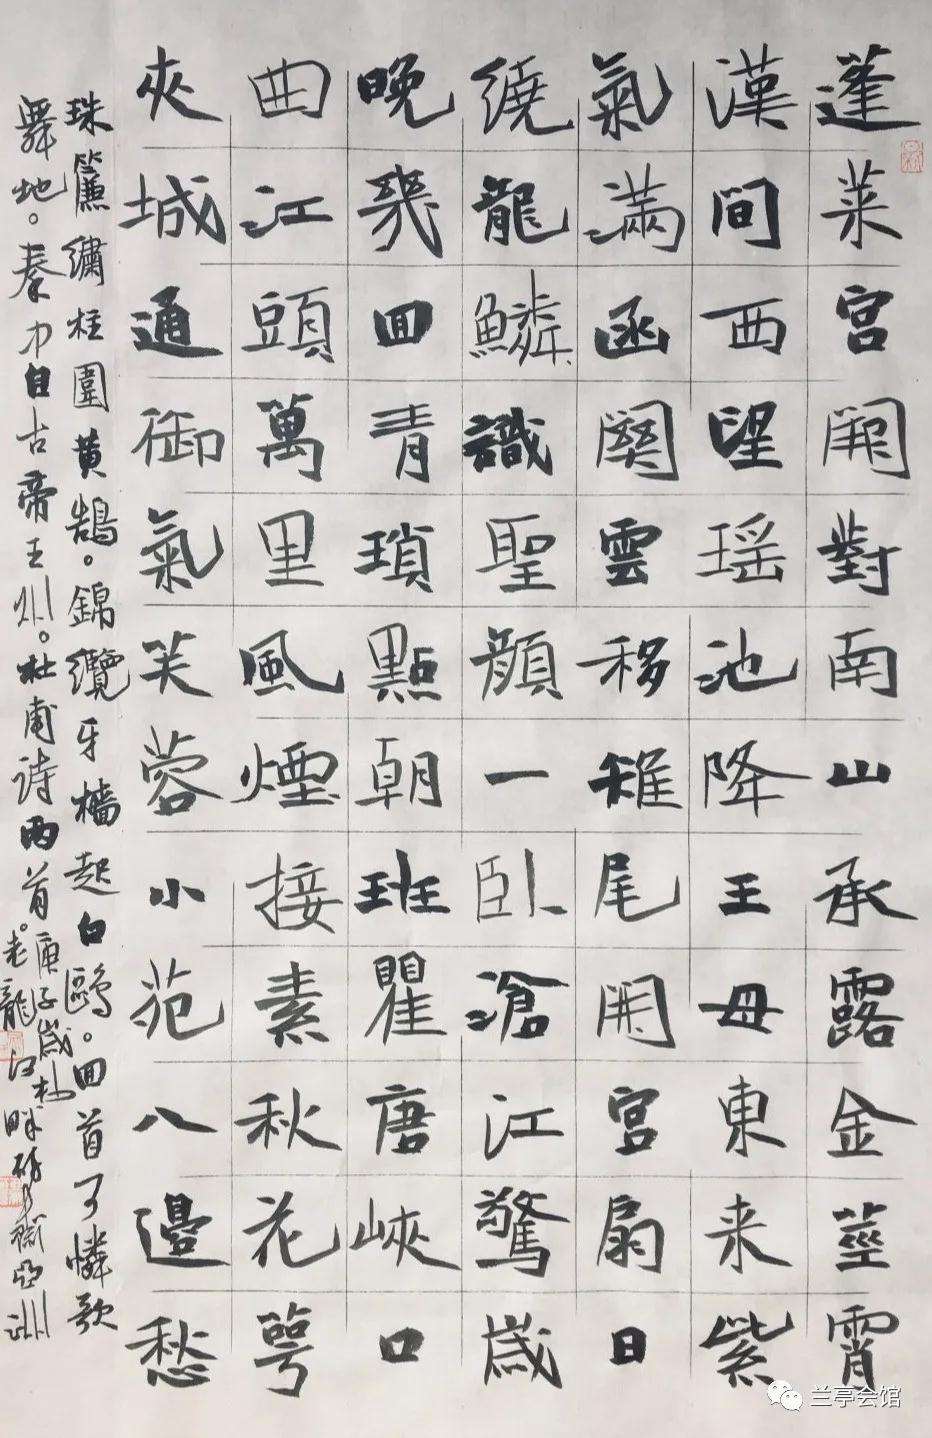 蓬莱宫闕對南山承露金莖霄
漢間西望瑶池降王母東来紫
氣滿函關雲移雉尾開宫扇日
繞龍鱗識聖顔一卧滄江驚歲
晚幾回青瑣點朝班瞿唐峽口
曲江頭萬里風煙接素秋花萼
夾城通御氣芙蓉小苑入邊愁
珠簾繡柱圍黄鵠。錦纜牙檣起白鷗。回首可憐歌
舞地。秦中自古帝王州。杜甫诗两首。庚子歲杪
老龍江畔亞洲
兰亭会馆